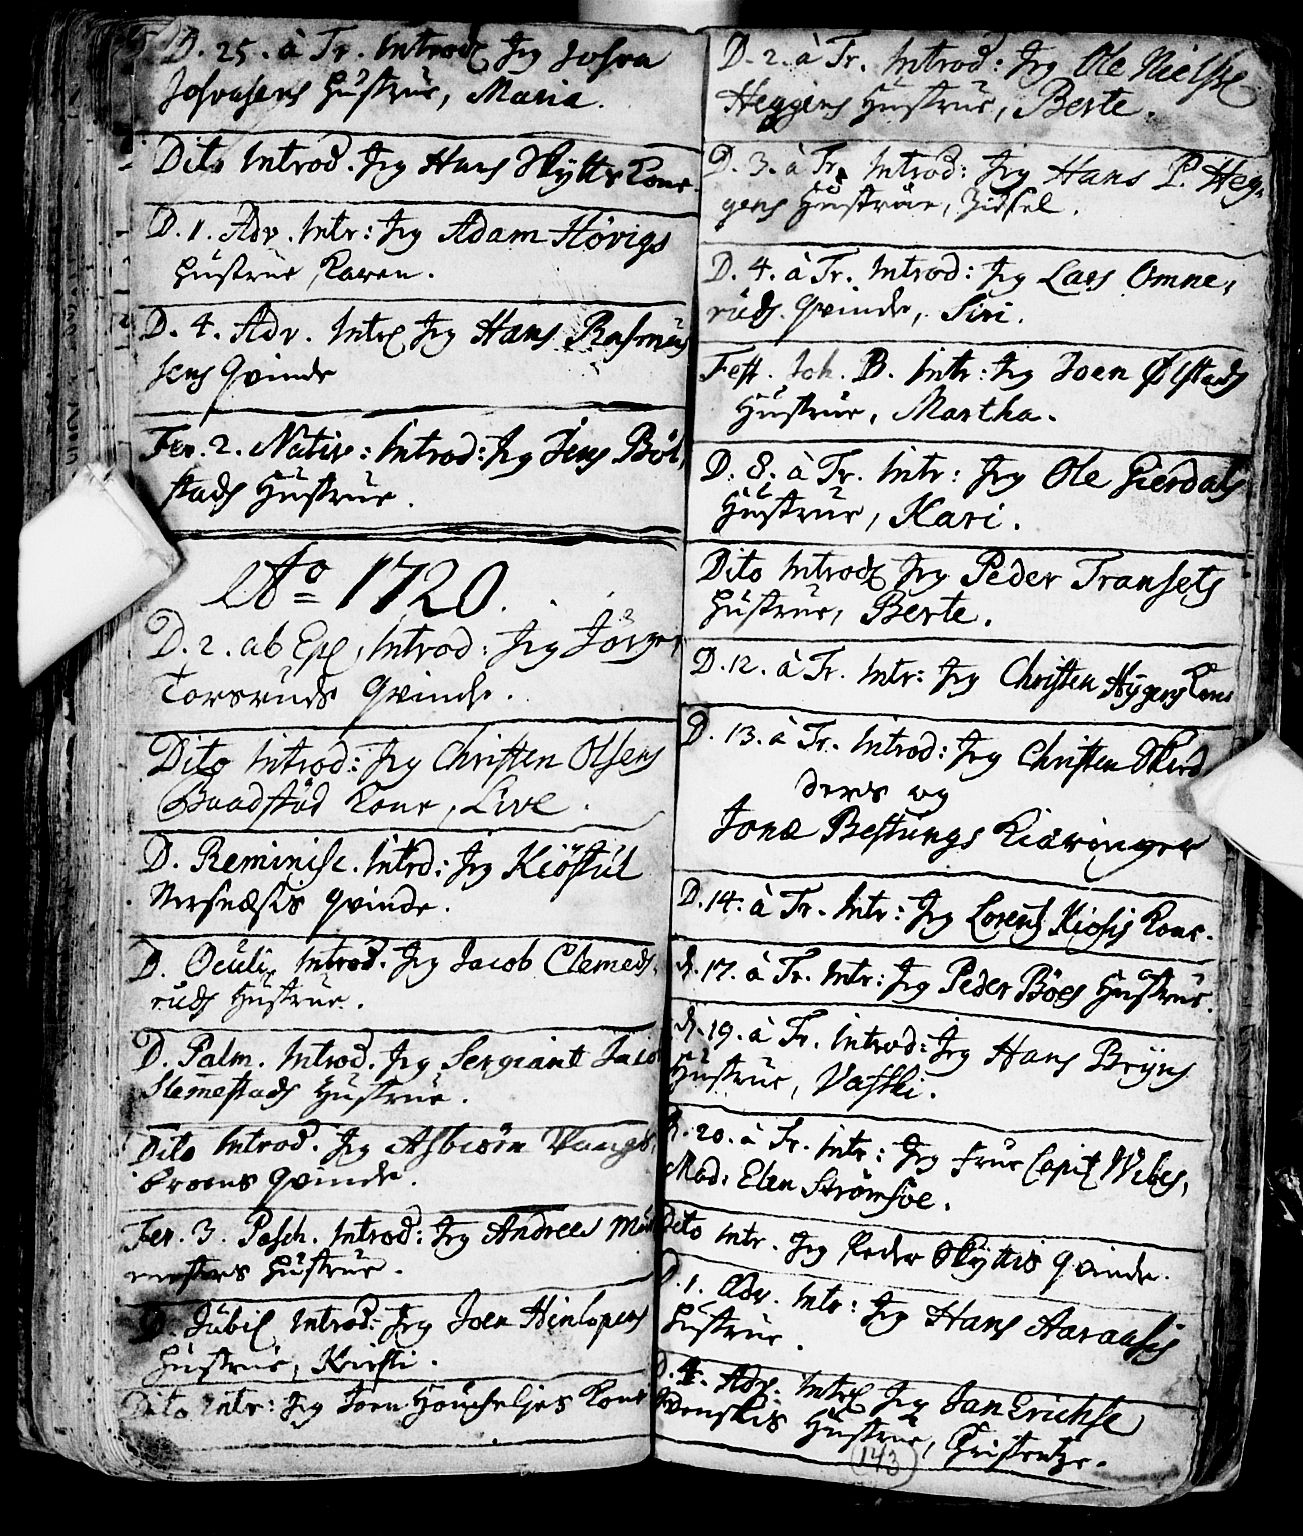 D. 25. à Tr. Introd: Jeg Josva
Josvasens Hustrue, Maria.
Dito Introd. Jeg Hans Skÿtts Kone.
D. 1. Adv. Intr: Jeg Adam Hövigs
Hustrue Karen.
D. 4. Adv. Intr: Jeg Hans Rasmus
sens Qvinde
Fer. 2. Nativ: Introd: Jeg Jens Böl,
stads Hustrue.
Ao 1720.
D. 2. ab Eph. Introd: Jeg Jörgen
Torsruds Qvinde.
Dito Introd: Jeg Christen Olsens
Baadstöd Kone, Live.
D. Reminisc. Introd: Jeg Kiöstul
Nersnæsis Qvinde.
D. Oculi, Introd. Jeg Jacob Clemeds,
ruds Hustrue.
D. Palm. Introd. Jeg Sergiant Jaco
Slemestads Hustrue.
Dito Introd. Jeg Asbiörn Vangs,
broens Qvinde.
Fer. 3. Pasch. Introd: Jeg Andrees Mur
mesters Hustrue.
D. Jubil Introd: Jeg Joen Hinlopens
Hustrue, Kirsti.
Dito Intr: Jeg Joen Kone
D. 2. à Tr. Introd: Jeg Ole Nielsen
Heggens Hustrue, Berte.
D. 3. à Tr. Introd: Jeg Hans P. Heg,
gens Hustrue, Zidsel.
D. 4. à Tr. Introd: Jeg Lars Omne,
ruds Qvinde, Siri.
Fest. Joh. B. Intr: Jeg Joen Ølstads
Hustrue, Martha.
D. 8. à Tr. Intr: Jeg Ole Gierdals
Hustrue, Kari.
Dito Introd: Jeg Peder Transets
Hustrue, Berte.
D. 12. à Tr. Intr: Jeg Christen Hÿgens Kone
D. 13. à Tr. Introd: Jeg Christen Skred
ders og
Jonæ Bestungs Kiæringer
D. 14. à Tr. Intr: Jeg Lorens Kiosis Kone.
D. 17. à Tr. Intr: Jeg Peder Böes Hustrue.
D. 19. à Tr. Introd: Jeg Hans Breÿns
Hustrue, Vasthi.
D. 20. à Tr. Intr: Jeg Frue Capit Wibes,
Mad: Elen Strömsöe.
Dito Intr. Jeg Peder Skÿttis Qvinde.
D. 1. Adv. Intr: Jeg Hans Aaraasis
Hustrue.
D. 4. Adv. Intr: Jeg Jan Erichse
Svenskis Hustrue, Christentze.
143